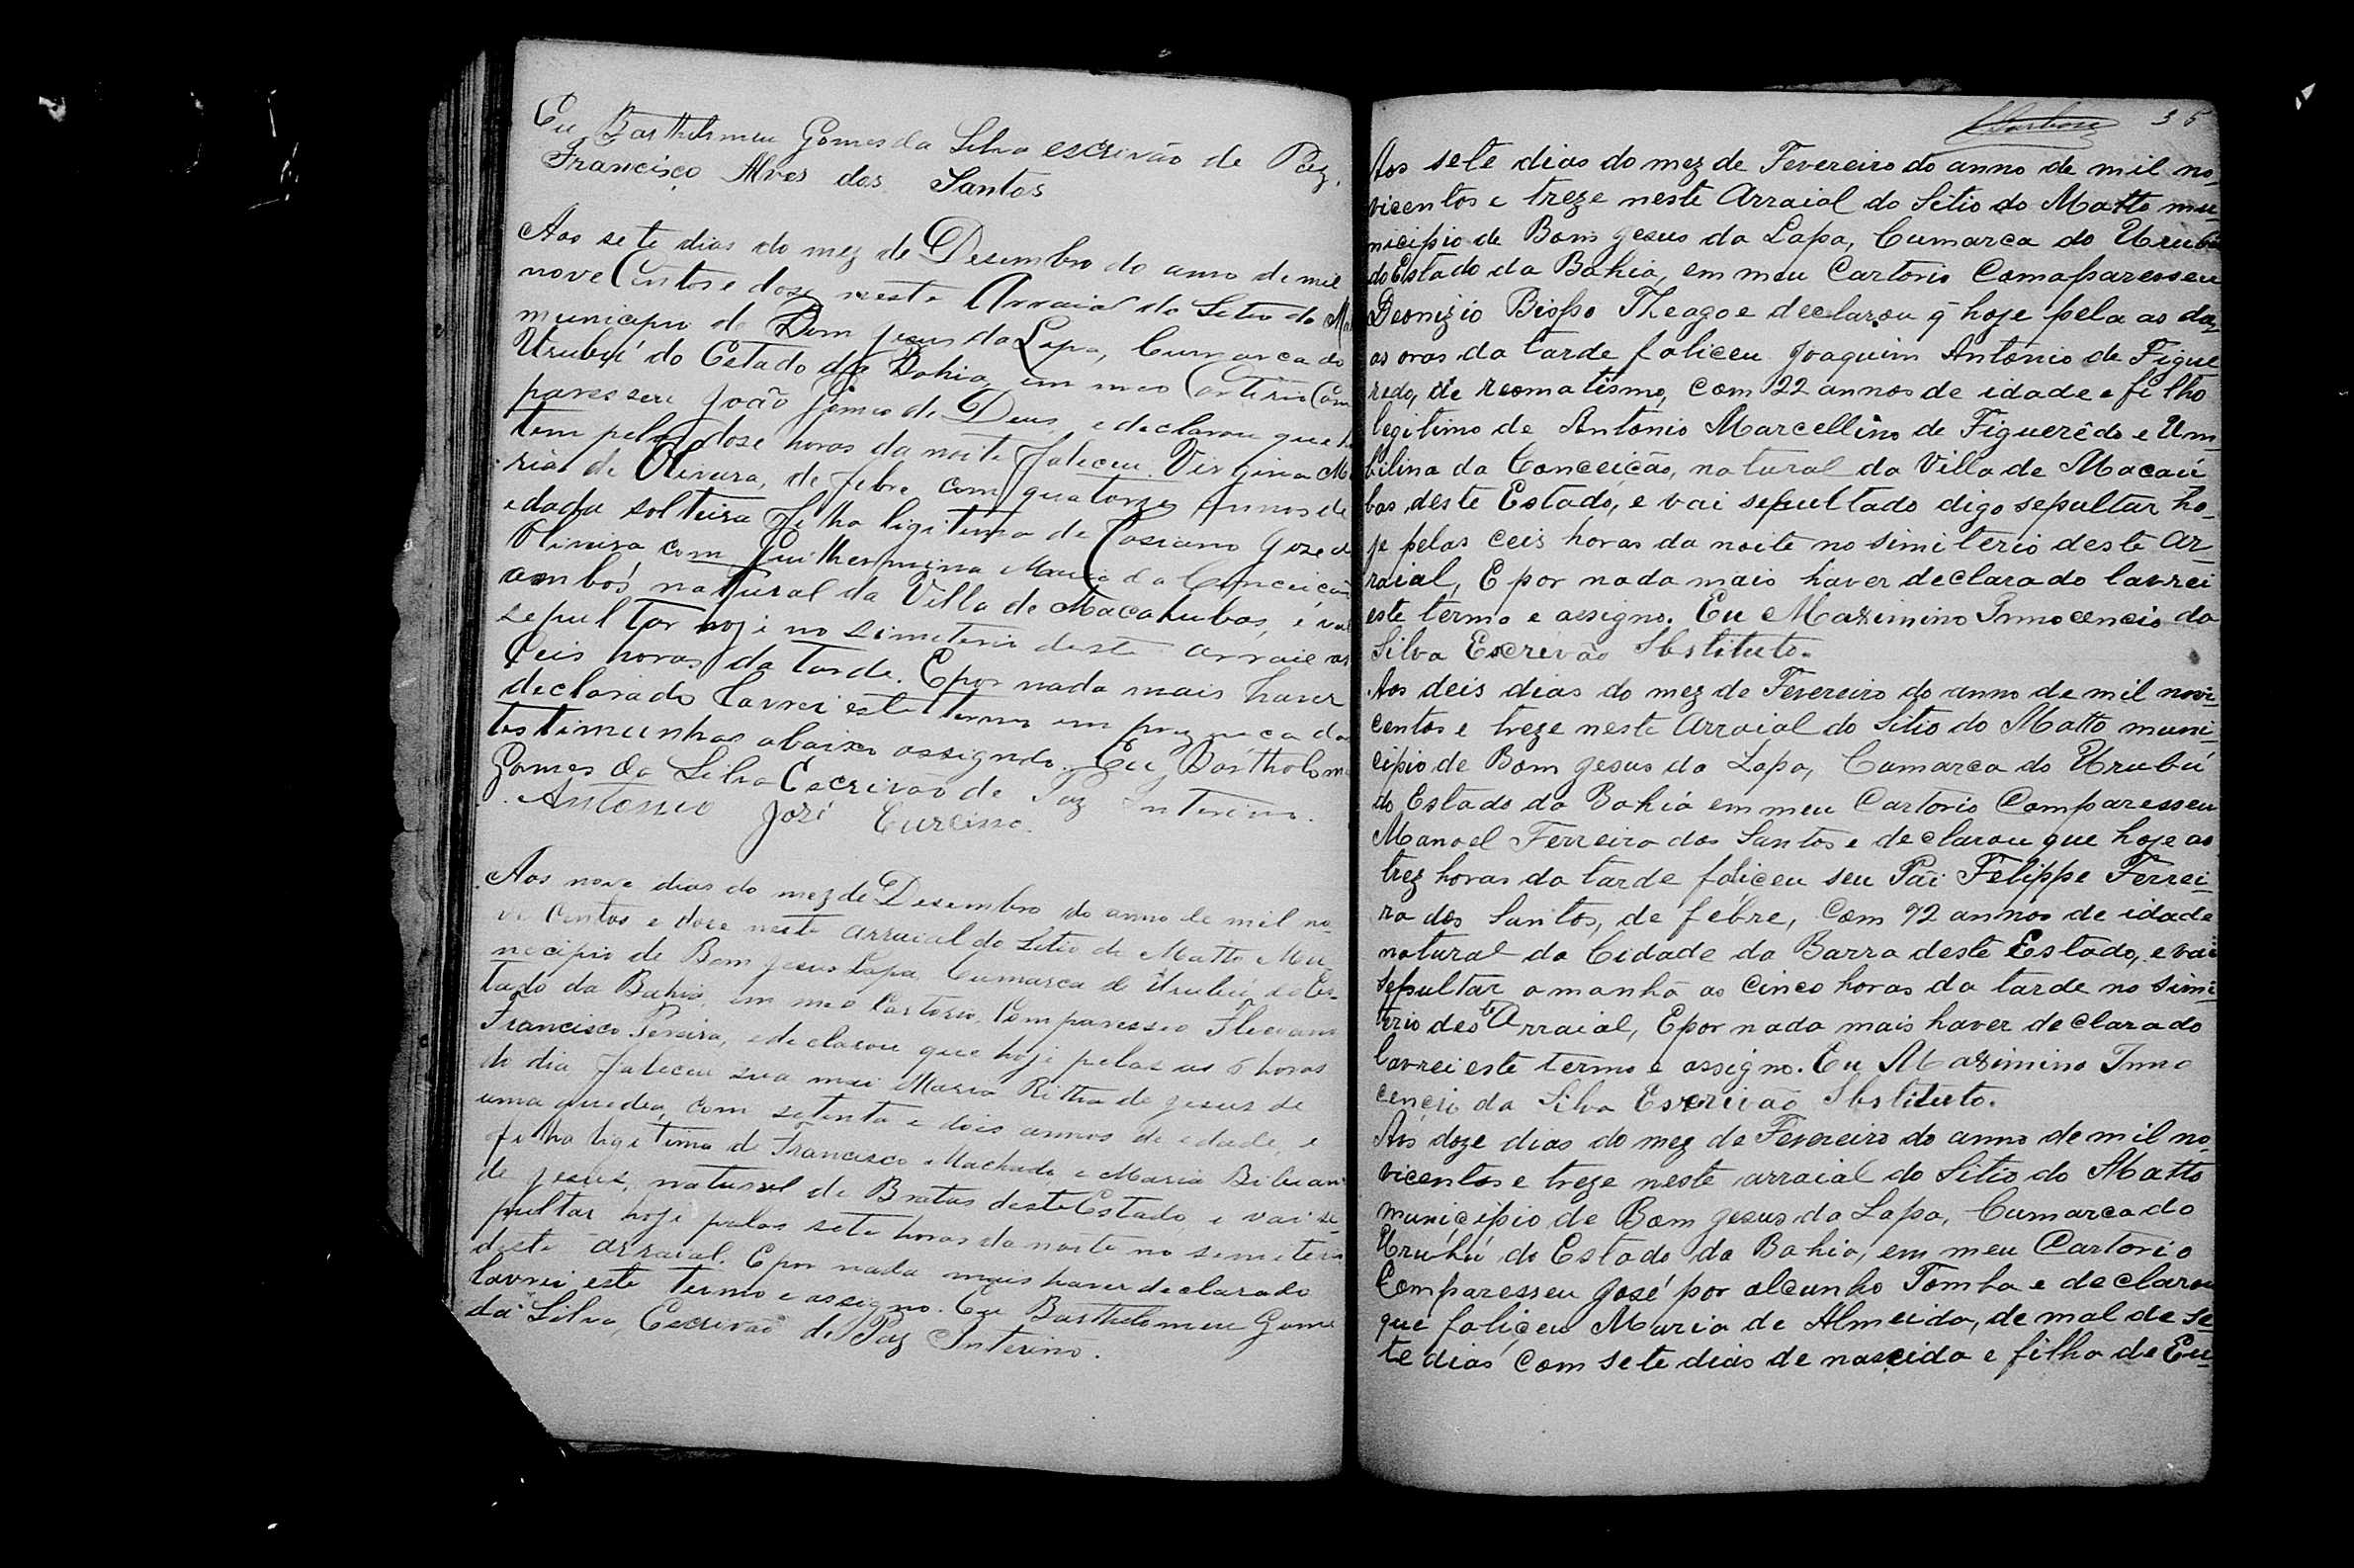 Eu Bartholomeu Gomes da Silva escrivão de Paz,
Francisco Alves dos Santos
Aos sete dias do mez de Desembro do anno de mil
nove Centos e dose neste Arraial do Setio do Ma
municipio de Bom Jesus da Lapa, Cumarca do
Urubú do Estado da Bahia, em meo Cartorio Com
paresseu João Gomes de Deus, e declarou que h
tem pelas dose horas da noite faleceu Virginia M
ria de Oliveira, de febre com quatorze Annos de
edade solteira filha ligitima de Cassiano Goze d
Oliveira com Guilhermina Maria da Conceição
ambos natural da Villa de Macahubas, e vai
sepultar hoji no Simiterio deste arraial as
Ceis horas da tarde. E por nada mais haver
declarado lavrei este termo em prezença das
testimunhas abaixo assignado. Eu Bartholome
Gomes da Silva Escrivão de Paz Interino.
Antonio José Curcino.
Aos nove dias do mez de Desembro do anno de mil no
ve Centos e dose neste arraial do Setio do Matto Mu
necipio de Bom Jesus Lapa, Cumarca do Urubú, do Es-
tado da Bahia, em meo Cartorio, Comparesseo
Francisco Pereira, e declarou que hoji pelas as 6 horas
do dia faleceu sua mai Maria Ritha de Jesus de
uma queda, com setenta e dois annos de edade, e
filha legitima de Francisco Machado, e Maria Bibiana
de Jesus, natural de Brotas deste Estado e vai se
pultar hoji pelas sete horas da noite no simiterio
deste arraial. E por nada mais haver declarado
lavrei este termo e assigno. Eu Bartholomeu Gome
da Silva, Escrivão de Paz Interino.
Barbosa 35
Aos sete dias do mez de Fevereiro do anno de mil no-
vicentos e treze neste Arraial do Sitio do Matto mu-
nicipio de Bom Jesus da Lapa, Cumarca do Urubú
do Estado da Bahia, em meu Cartorio Comaparesseu
Deonizio Bispo Theago e declarou q̃ hoje pela as da,
as oras da tarde faliceu Joaquim Antonio de Figue
redo, de reomatismo, com 22 annos de idade e filho
legitimo de Antonio Marcellino de Figuerêdo e Um-
bilina da Conceição, natural da Villa de Macaú
bas deste Estado, e vai sepultado digo sepultar ho-
je pelas ceis horas da noite no simiterio deste Ar-
raial, E por nada mais haver declarado lavrei
este termo e assigno. Eu Maximino Innocencio da
Silva Escrivão Sbstituto.
Aos deis dias do mez de Fevereiro do anno de mil novi-
centos e treze neste Arraial do Sitio do Matto muni-
cipio de Bom Jesus da Lapa, Camarca do Urubú
do Estado da Bahia em meu Cartorio Comparesseu
Manoel Ferreira dos Santos e declarou que hoje as
trez horas da tarde faliceu seu Pai Felippe Ferrei-
ra dos Santos, de febre, Com 72 annos de idade
natural da Cidade da Barra deste Estado, e vai
sepultar amanhã as Cinco horas da tarde no simi
terio deste Arraial, E por nada mais haver declarado
lavrei este termo e assigno. Eu Maximino Inno
cencio da Silva Escrivão Sbstituto.
Aos doze dias do mez de Fevereiro do anno de mil no
vicentos e treze neste arraial do Sitio do Matto
municipio de Bom Jesus da Lapa, Cumarca do
Urubú do Estado da Bahia, em meu Cartorio
Comparesseu José por alcunho Tomba e declarou
que faliçeu Maria de Almeida, de mal de se-
te dias Com sete dias de nascida e filha de Eu-